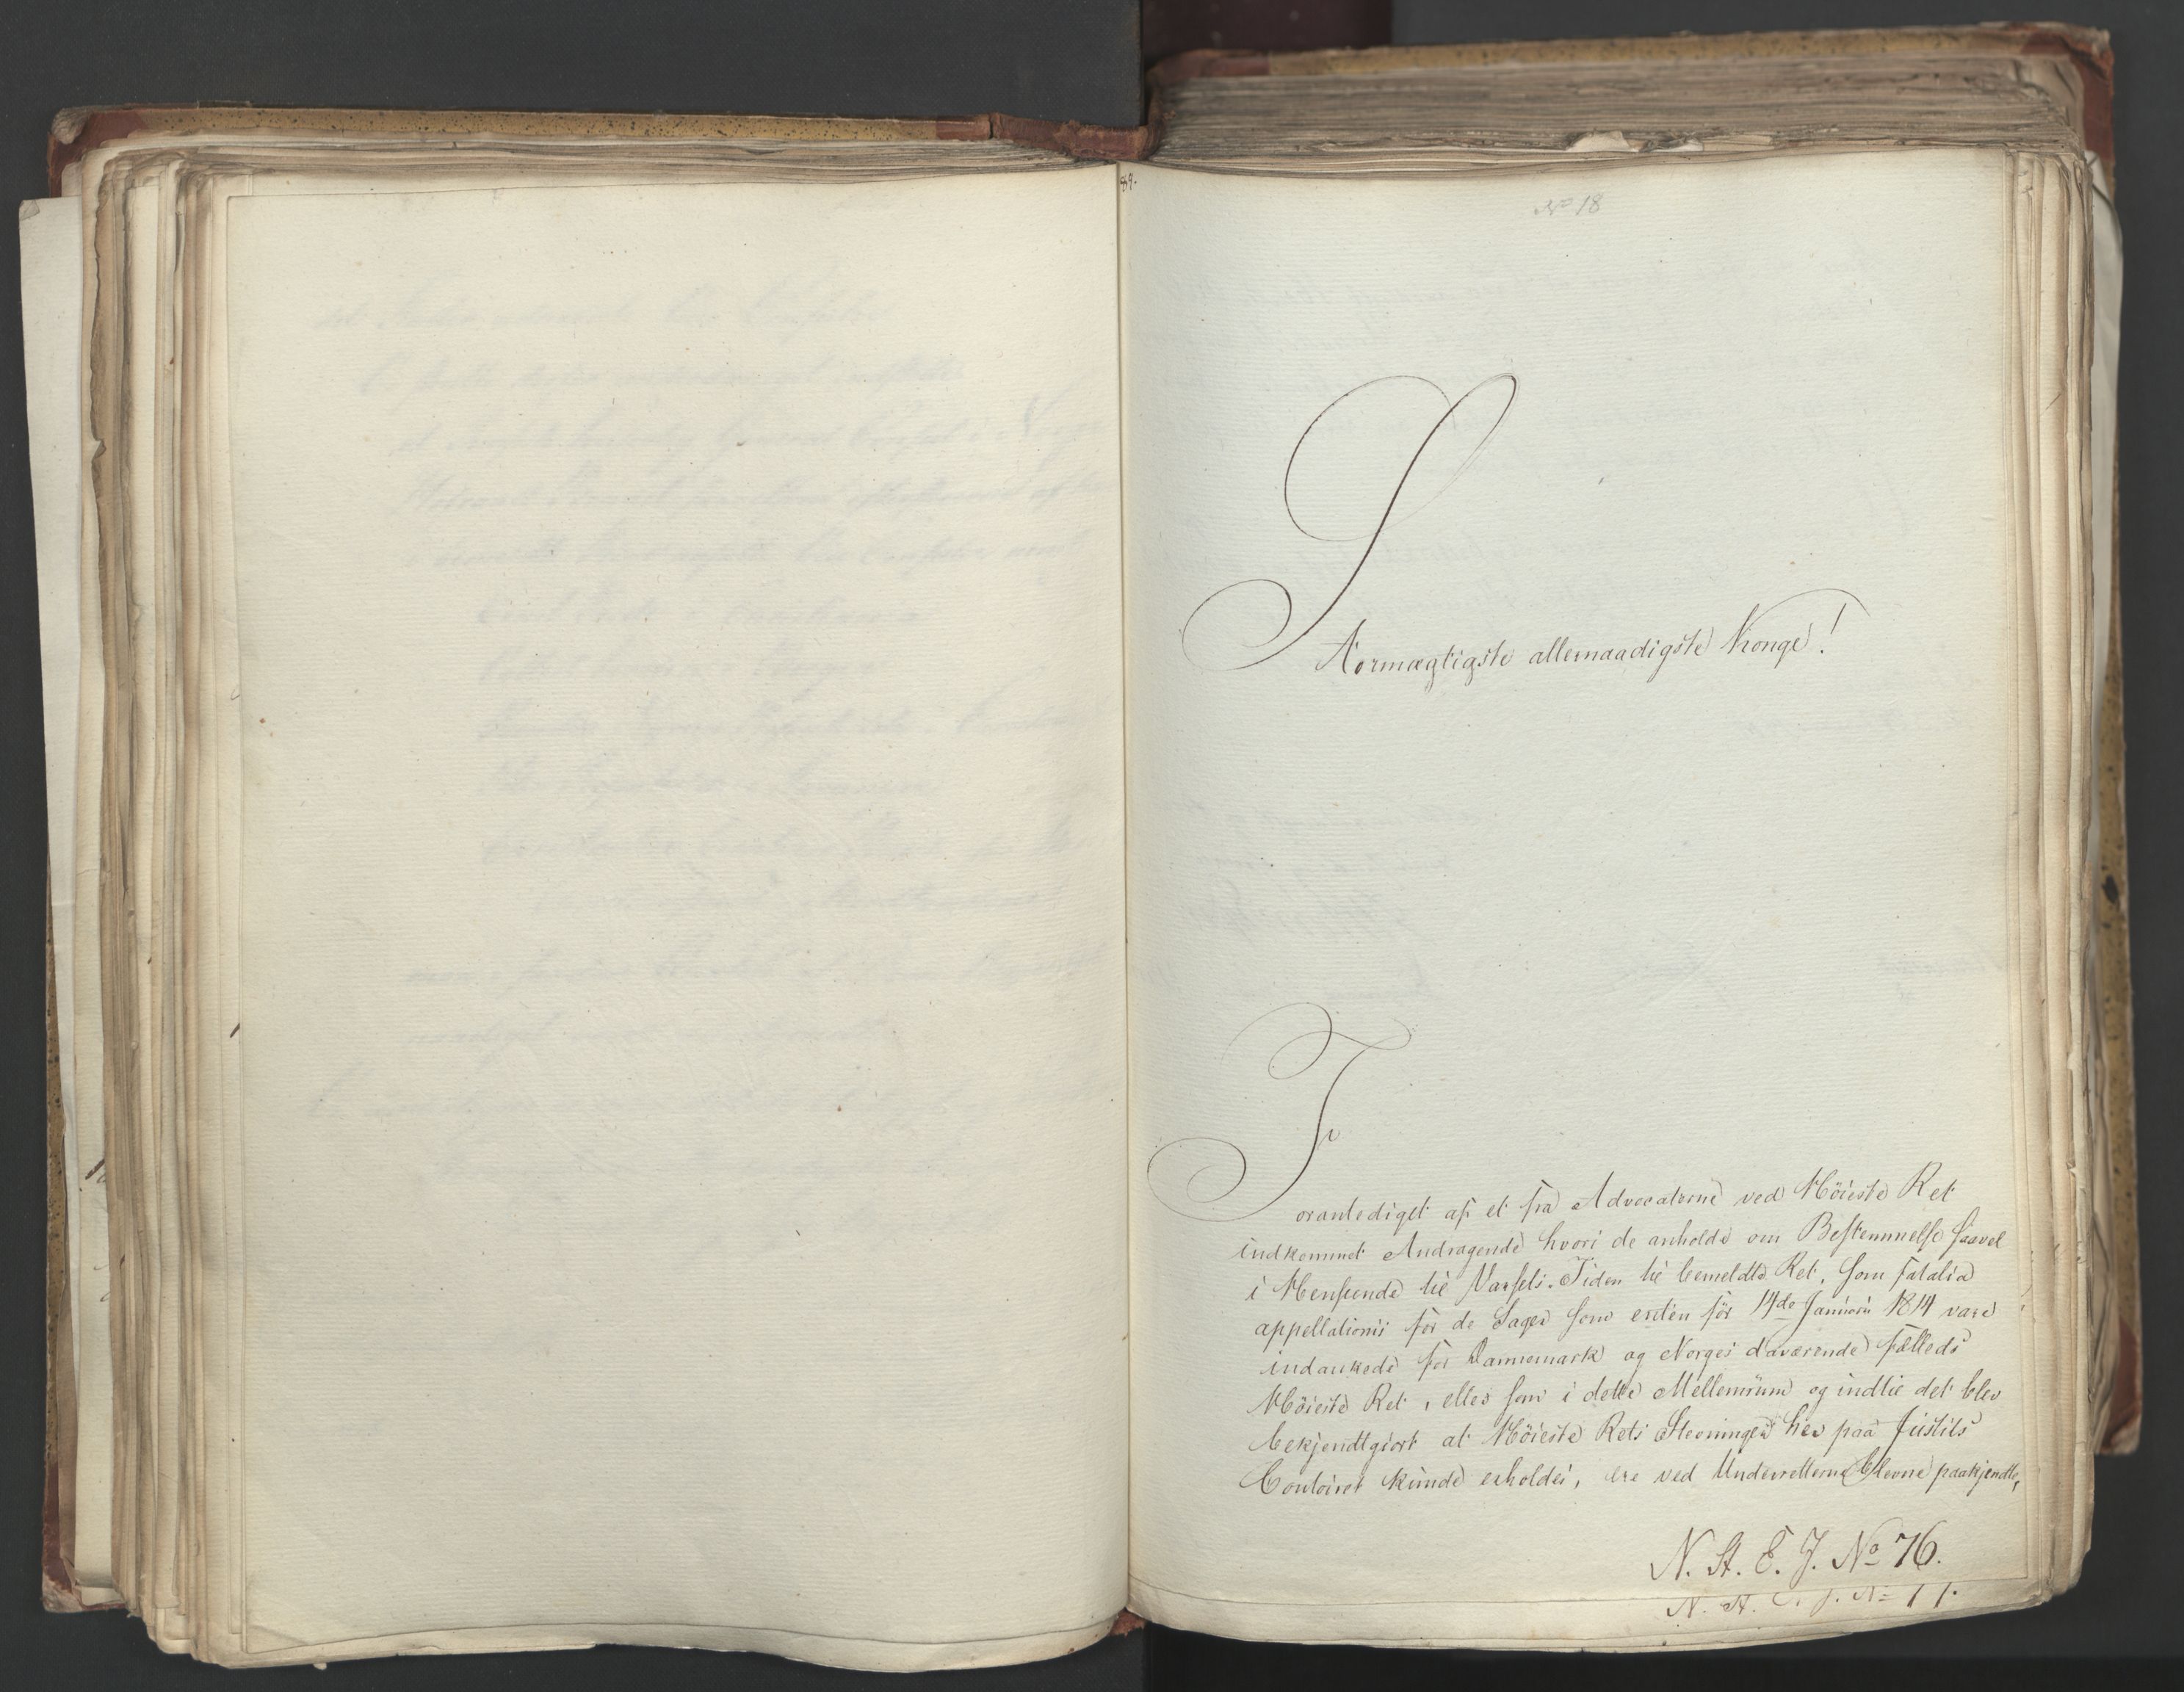 84.
No 18
Stormægtigste allernaadigste Konge!
Foranlediget af et fra Advocaterne ved Höieste Ret
indkommet Andragende hvori de anholde om Bestemmelse saavel
i Henseende til Varsels-Tiden til bemeldte Ret, som fatalia
appellationis for de Sager som enten för 14de Januari 1814 vare
indankede for Dannemark og Norges daværende fælleds
Höieste Ret, eller som i dette Mellemrum og indtil det blev
bekjendtgiort at Höieste Rets Stevninger her paa Justits
Contoiret kunde erholdes, ere ved Underretterne blevne paakjendte,
N. St. E. J. No 76.